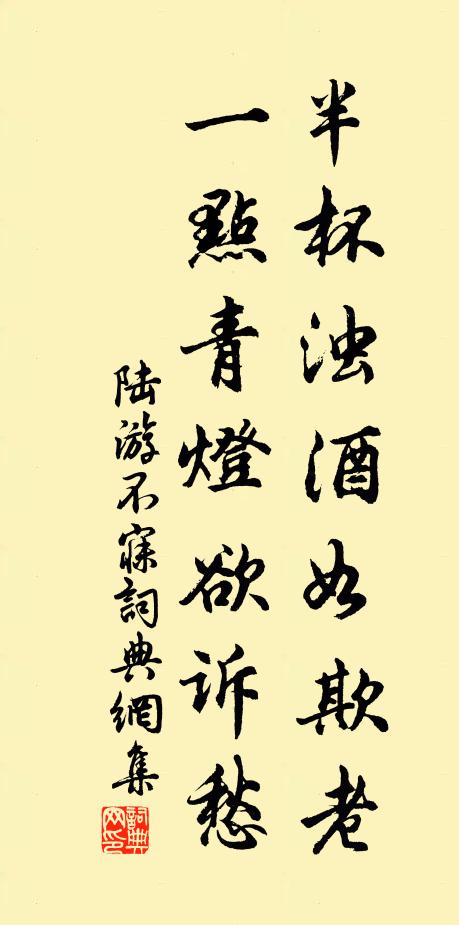 半杯浊酒如欺老
一點青燈欲诉愁
陆游不寐詞典網集
詞典网印